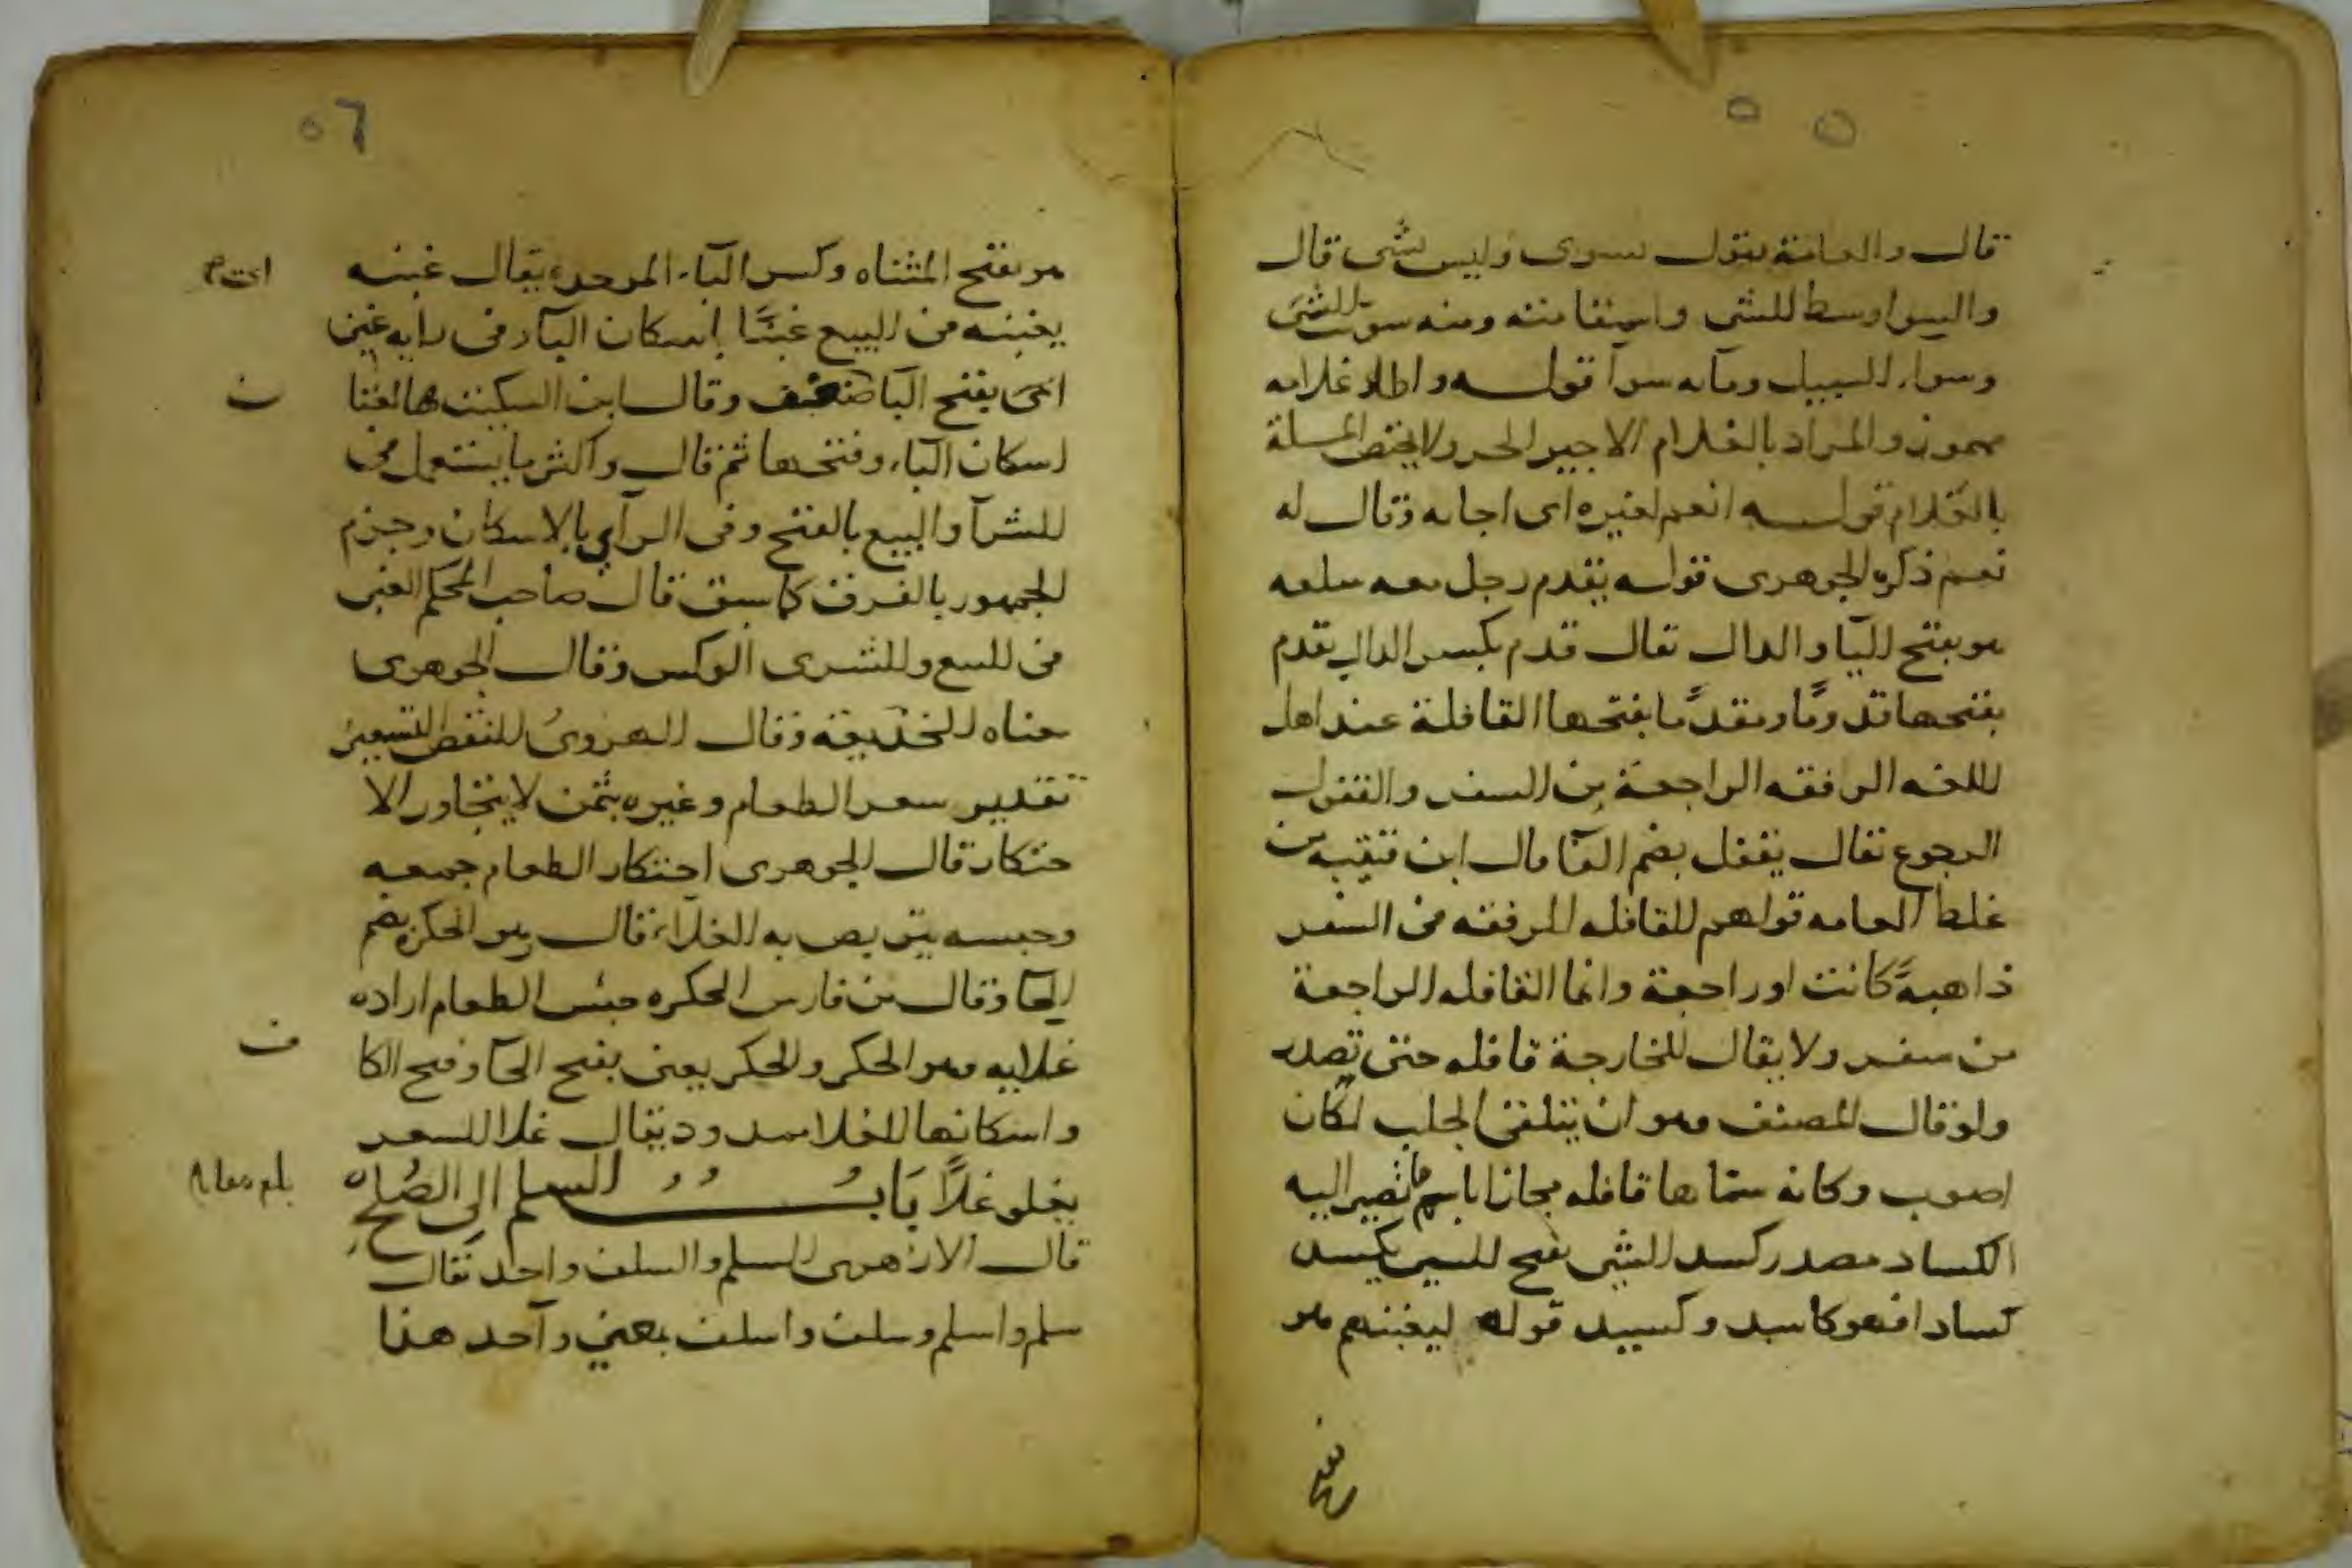 ٥٥
قال والعامة يقول يسوى وليس بشى قال
والسوا وسط للشى واستقامته ومنه سوت للشى
وسواء السبيل ومايه سوا قوله واطلا غلامه
والمراد بالغلام الاجير الحر ولا يختص المسلة
بالغلام قوله انعم لغيره اى اجابه وقال له
نعم ذكره الجوهرى قوله يقدم رجل معه سلعه
هو بفتح اليا والدال تقال قدم بكسر الدال يقدم
بفتحها قدومًا ومقدمًا بفتحها القافلة عند اهل
اللغه الرفقه الراجعة من السفر والقفول
الرجوع تقال يقفل بضم الفا قال ابن قتيبه من
غلط العامه قولهم للقافله المرفقه فى السفر
ذاهبةً كانت او راجعة وانما القافله الراجعة
من سفر ولا يقال للخارجة قافله حتى تصدر
ولو قال المصنف وهو ان يتلقى الجلب لكان
اصوب وكانه سماها قافله مجازا باسم ما تصير اليه
الكساد مصدر كسد الشى بفتح السين يكسد
كسادا فهو كاسد وكسيد قوله ليغبنهم هو
٥٦
هو بفتح المثناه وكسر الباء الموحدة يقال غبنه
يغبنه فى البيع غبنًا باسكان الباء وفى رايه غبن
اى بفتح البا ضعف وقال ابن السكيت هما لغتا
اسكان الباء وفتحها ثم قال واكثر ما يستعمل فى
الشرا والبيع بالفتح وفى الراي بالاسكان وجزم
الجمهور بالفرق كما سبق قال صاحب المحكم الغبن
فى البيع والشرى الوكس وقال الجوهرى
معناه الخديعة وقال الهروىُ النقص التسعير
تقدير سعر الطعام وغيره بثمن لا يتجاوز الا
حتكار قال الجوهرى احتكار الطعام جمعه
وحبسه يتربص به الغلاء قال وهو الحكرة بضم
الحا وقال بن فارس الحكره حبس الطعام اراده
غلايه وهو الحكر والحكر يعنى بفتح الحا وفتح الكا
واسكانها الغلا ممدود يقال غلا السعر
يغلو غلاً بَابُ السلم الى الصُلحِ
قال الازهرى السلم والسلف واحد تقال
سلم واسلم وسلف واسلف بمعنى واحد هذا